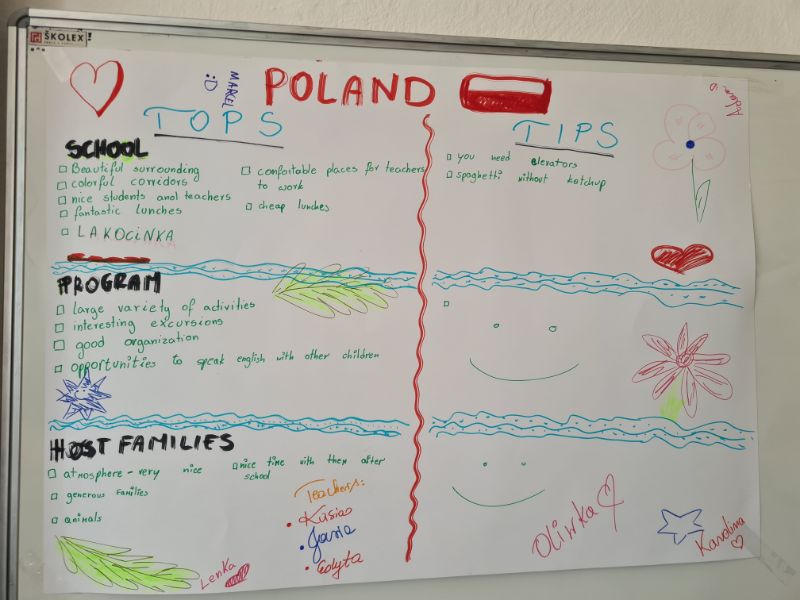 ŠKOLEX
MAREL :D
POLAND
TOPS
TIPS
SCHOOL
Beautiful surrounding
colorful corridors
nice students and teachers
fantastic lunches
LAKOCINKA
comfoitable places for teachers
to work
cheap lunches
you need elevators
spaghetti without ketchup
PROGRAM
large variety of activities
interesting excursions
good organization
opportunities to speak english with other children
HOST FAMILIES
atmosphere - very nice
generous families
animals
nice time with them after
school
Teachers:
Kasia
Edyta
Lenka
Oliwka
Karolina